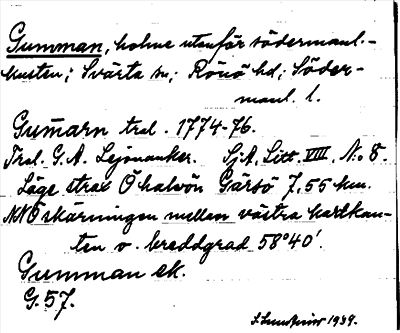 Gumman, holme utanför södermanl.-
kusten; Svärta sn; Rönö hd; Söder-
manl. l.
Gumarn tral. 1774-76.
Tral. G. A. Lejonanker. SjA, Litt. VIII, No 8.
Läge strax Ö halvön Gärsö 7,55 km.
NNÖ skärningen mellan västra kartkan-
ten o. breddgrad 58°40'.
Gumman ek.
G. 57.
1939.